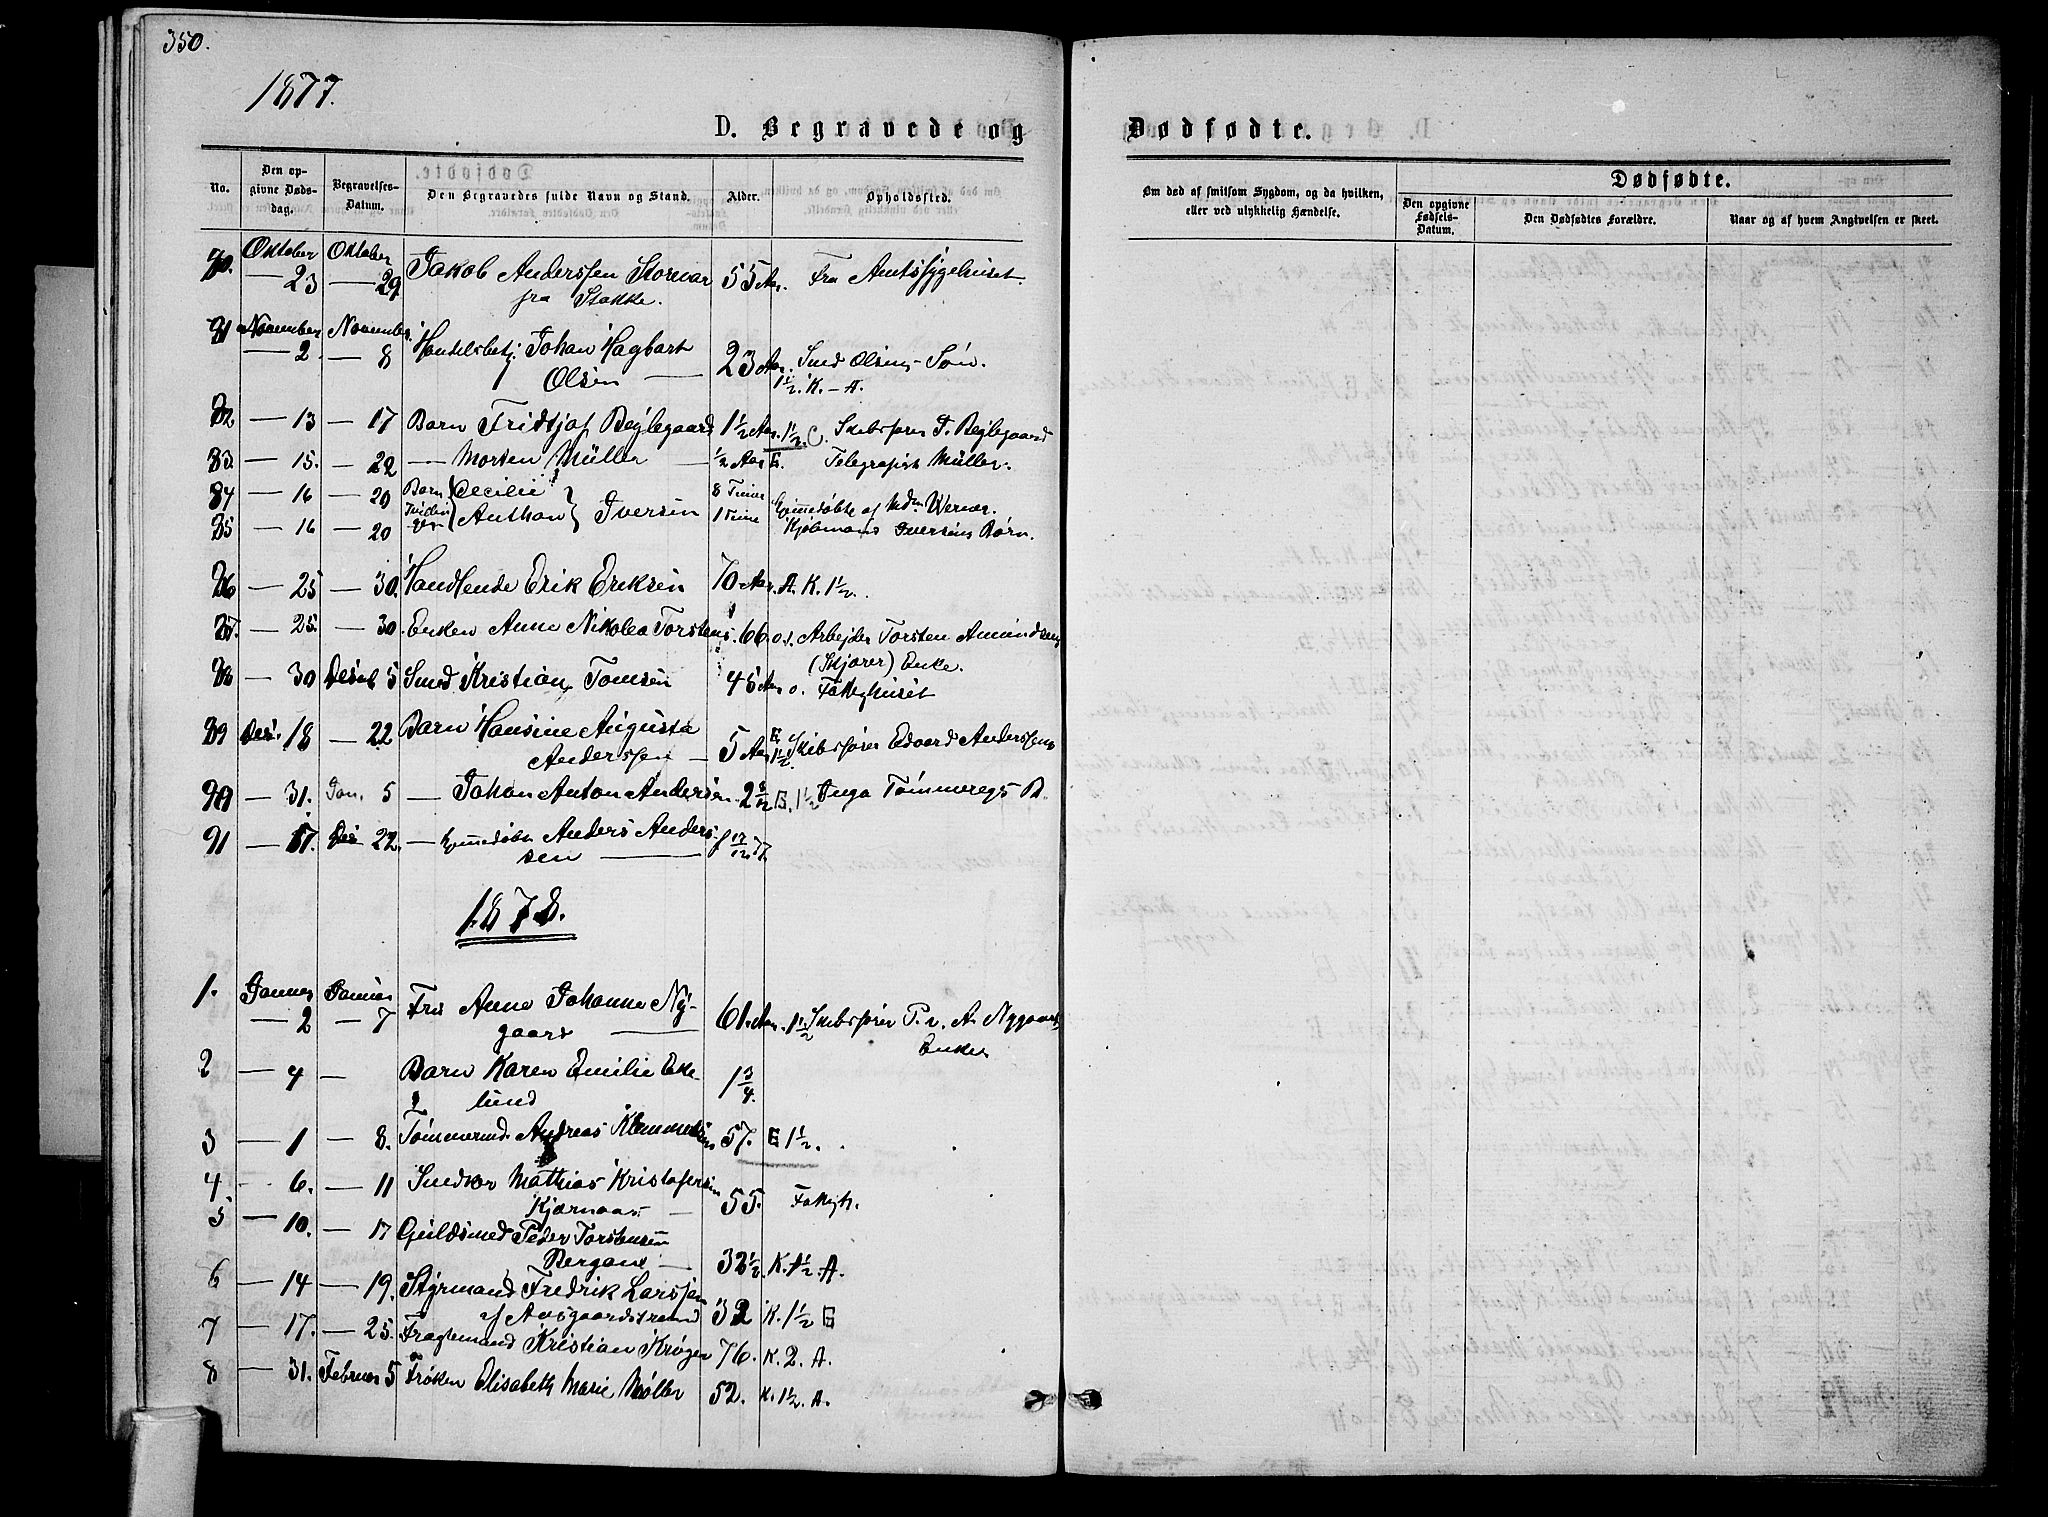 350.
1877.
D. Begravede og Dødfødte.
No. Den opgivne Dødsdag. Begravelses-Datum. Den Begravedes fulde Navn og Stand. Alder. Opholdssted.
Om død af smitsom Sygdom, og da hvilken, eller ved ulykkelig Hændelse.
Dødfødte.
Den opgivne Fødsels-Datum. Den Dødfødtes Forældre. Naar og af hvem Angivelsen er skeet.
80. Oktober 23 Oktober 29 Jakob Anderssen Stornar 55 Aar. Fra Amtssygehuset.
fra Stokke.
81 November 2 November 8 Handelsbetj Johan Hagbart 23 Aar. Smed Olsens Søn.
Olsen 1½. K. - A.
82 — 13 — 17 Barn Fridtjof Bøjlegaard 1½ Aar. 1½ C. Skibsfører F. Bøjlegaard
83. — 15. — 22 — Morten Müller — ½ Aar E. Telegrafist Müller.
84 — 16 — 20 Barn Cecilie 8 Timer Hjemmedøbte af Mdm Werner.
85 — 16 — 20 Tvillinger Anthon Iversen 1 Time Kjøbmand Iversens Børn.
86 — 25 — 30. Handlende Erik Eriksen 70 Aar. A. K. 1½.
87. — 25. — 30. Enken Anne Nikolea Torstens. 66 o. Arbejder Torsten Amundsens
(Skjører) Enke.
88 — 30 Desbr 5 Smed Kristian Tomsen 45 Aar o. Fattighuset
89 Des. 18 — 22 Barn Hansine Augusta 5 Aar E 1½. Skibsfører Edvard Anderssens
Anderssen —
90 — 31. Jan. 5 — Johan Anton Andersen. 2 8/12 E. 1½ Inga Tømmeregs B.
91 — 17. Des 22. — Hjemmedøbt Anders Anders-
sen —
1878.
1. Januar 2 Januar 7 Fru Anne Johanne Ny- 61. Aar. 1½ Skibsfører P. v. A. Nygaards
gaard — Enke
2 — 4 — Barn Karen Emilie Eke- 1 3/4.
lund
3 — 1 — 8. Tømmermd. Andreas Klemmetsen 57. E 1½.
4 — 6. — 11 Snedker Mathias Kristofersen 55. Fattigh.
Kjærnaas —
5 — 10. — 17 Guldsmed Peder Torstensen
Bergane — 32½. K. 1½. A.
6 — 14 — 19. Styrmand Fredrik Larssen
af Aasgaardstrand 32 K. 1½ E
7 — 17. — 25. Fragtemand Kristian Krøger 76. K. 2. A.
8 — 31. Februar 5 Frøken Elisabeth Marie Møller 52. K. 1½. A.